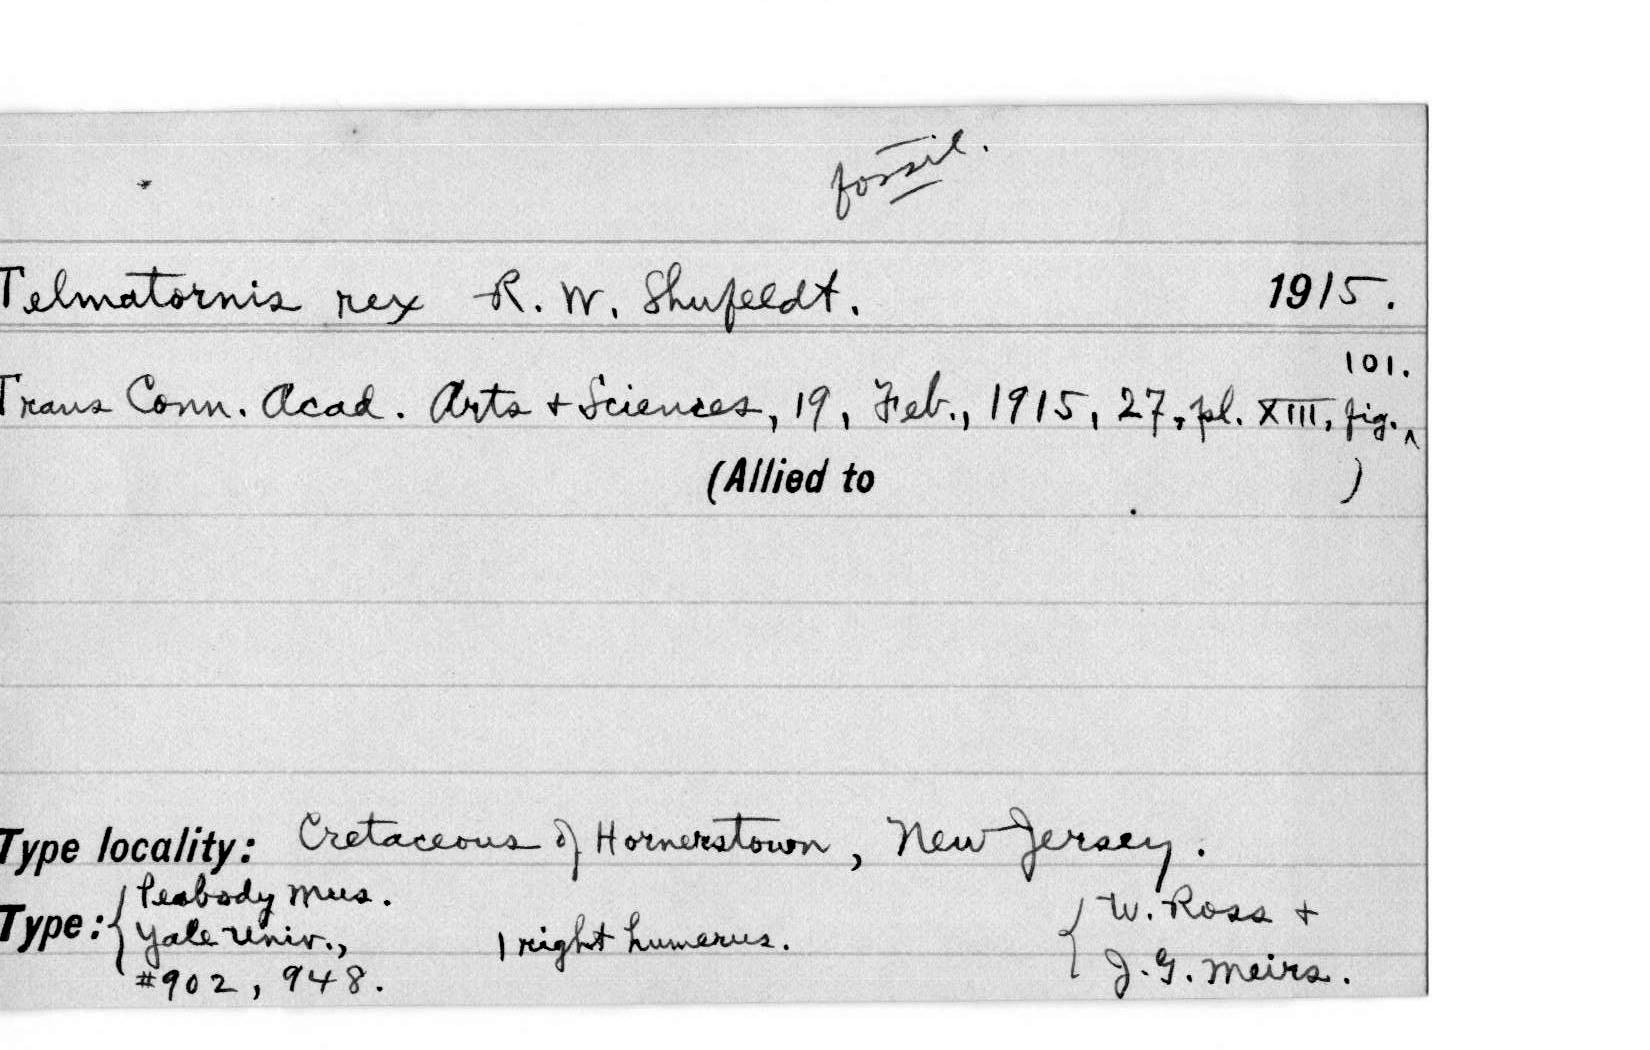 fossil.
Telmatornis rex R. W. Shufeldt. 1915.
101.
Trans Conn. Acad. Arts + Sciences, 19, Feb., 1915, 27, pl. XIII, fig. ^
(Allied to )
Type locality: Cretaceous of Hornerstown, New Jersey.
Type: { Peabody Mus.
Yale Univ.,
#902, 948.
1 right humerus.
{ W. Ross +
J. G. Meirs.